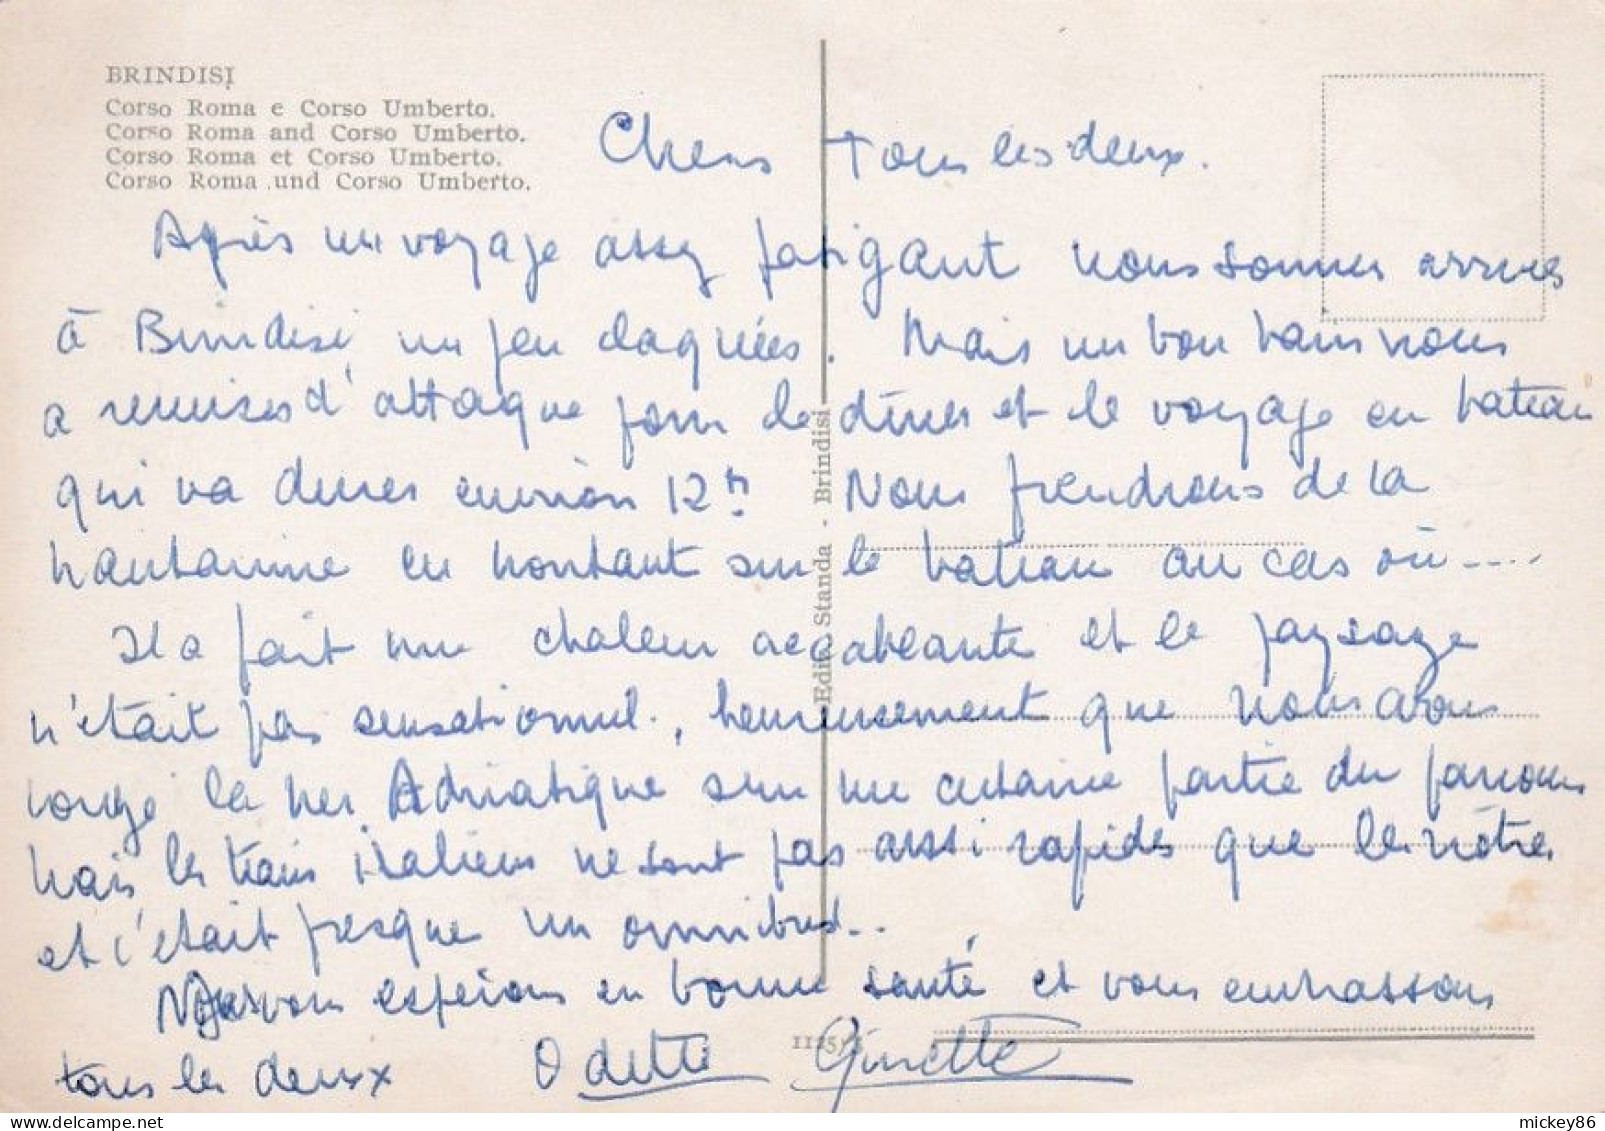 BRINDISI
Corso Roma e Corso Umberto.
Corso Roma and Corso Umberto.
Corso Roma et Corso Umberto.
Corso Roma und Corso Umberto.
Chers Tous les deux.
Après un voyage assez fatigant nous sommes arrivées
à Brindisi un peu claquées. Mais un bon bain nous
a remises d'attaque pour le dîner et le voyage en bateau
qui va durer environ 12h. Nous prendrons de la
nautamine en montant sur le bateau au cas où....
Il a fait une chaleur accablante et le paysage
n'était pas sensationnel, heureusement que nous avons
longé la mer Adriatique sur une certaine partie du parcours
mais les trains italiens ne sont pas aussi rapides que les nôtres
et c'était presque un omnibus..
Nous vous espérons en bonne santé et vous embrassons
tous les deux Odette Ginette
Ediz. Standa - Brindisi
mickey86